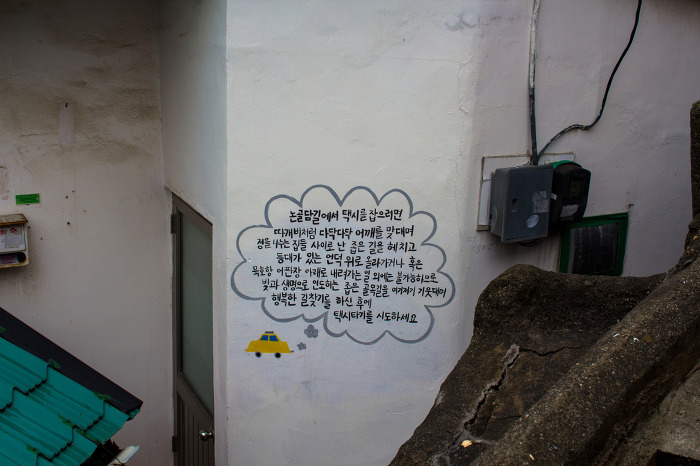 논골담길에서 택시를 잡으려면
따개비처럼 다닥다닥 어깨를 맞대며
정을 나누는 집들 사이로 난 좁은 길을 헤치고
등대가 있는 언덕 위로 올라가거나 혹은
묵호항 어판장 아래로 내려가는 일 외에는 불가능하므로
빛과 생명으로 인도하는 좁은 골목길을 여기저기 기웃대며
행복한 길찾기를 하신 후에
택시타기를 시도하세요